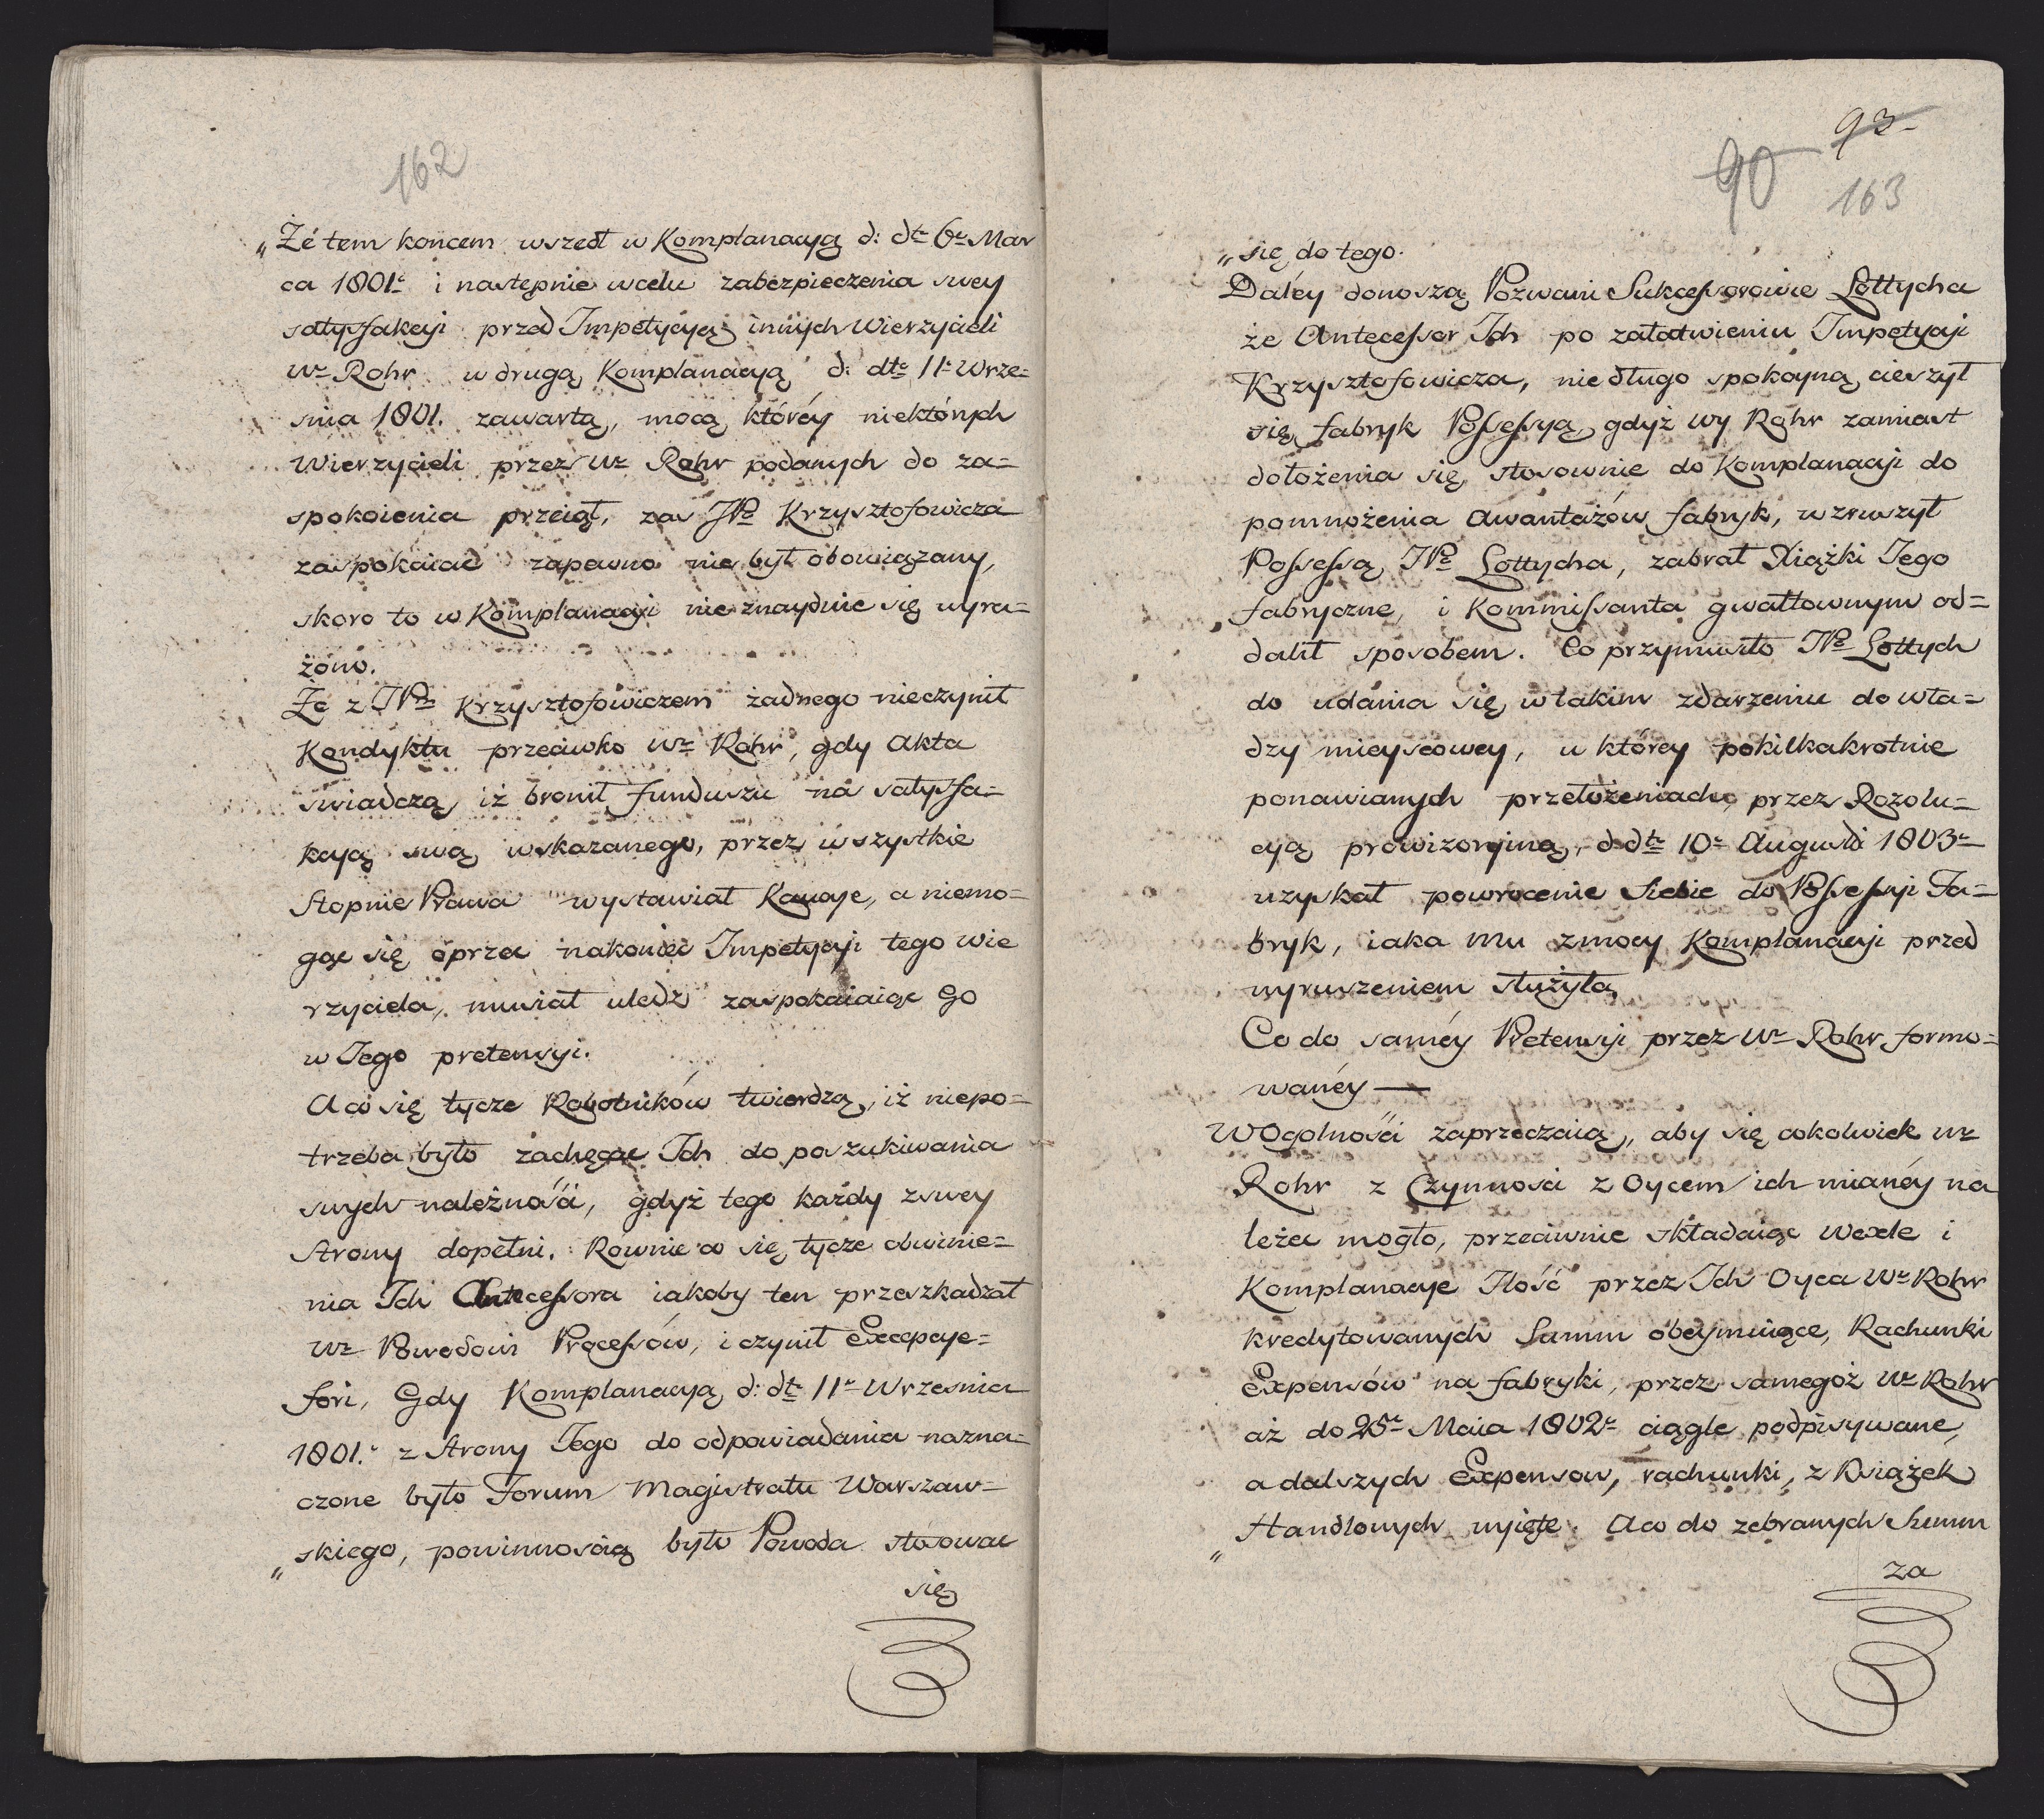 162
„Żé tem koncem wszedł w Komplanacyą d: dto 6o Mar
ca 1801o i następnie wcelu zabezpieczenia swey
satysfakcyi przed Impetycyą innych Wierzycieli
Wr Rohr w drugą Komplanacyą d: dto 11o Wrze=
snia 1801. zawartą, mocą któréy niektórych
Wierzycieli przez Wr Rohr podanych do za=
spokoienia przeiął, zas JPa Krzysztofowicza
zaspokaiać zapewno nie był obowiązany,
skoro to w Komplanacyi nie znayduie się wyra=
żóno.
Że z JPm Krzysztofowiczem żadnego nieczynił
Kondyktu przeciwko Wr Rohr, gdy Akta
swiadczą iż bronił funduszu na satysfa=
kcyą swą wskazanego, przez wszystkie
Stopnie Prawa wystawiał Kaucye, a niemo=
gąc się oprzeć nakoniec Impetycyi tego Wie
rzyciela, musiał uledz zaspokaiaiąc Go
w Jego pretensyi.
A co się tycze Robotników twierdzą, iż niepo=
trzeba było zachęcac Ich do poszukiwania
swych należnośći, gdyż tego każdy zswey
Strony dopełni. Rownie co się tycze obwinie=
nia Ich Antecessora iakoby ten przeszkadzał
Wr Powodowi Processów, i czynił Excepcye=
fori, Gdy Komplanacyą d: dto 11o Wrzesnia
1801.o z Strony Jego do odpowiadania nazna=
czone było Forum Magistratu Warszaw=
„skiego, powinnoscią było Powoda stosowac
się
93
90
163
„się do tego.
Daléy donoszą Pozwani Sukcessorowie Lottycha
że Antecessor Ich po załatwieniu Impetycyi
Krzysztofowicza, niedługo spokoyną cieszył
się fabryk Possessyą, gdyż Wy Rohr zamiast
dołożenia się stosownie do Komplanacyi do
pomnożenia Awantażów fabryk, wzruszył
Possessą JPa Lottycha, zabrał Xiążki Jego
fabryczne, i Kommissanta gwałtownym od=
dalił sposobem. Co przymusiło JPa Lottych
do udania się wtakim zdarzeniu do wła=
dzy mieyscowey, u którey pokilkakrotnie
ponawianych przełożeniach, przez Rezolu=
cyą prowizoryiną, d dto 10o Augusti 1803o
uzyskał powrocenie Siebie do Possessyi Fa=
bryk, iaka Mu zmocy Komplanacyi przed
wyruszeniem służyła
Co do saméy Pretensyi przez Wr Rohr formo=
wanéy —
WOgolnośći zaprzeczaią, aby się cokolwiek Wr
Rohr z Czynnosci z Oycem ich mianéy na
leżec mogło, przeciwnie składaiąc Wexle i
Komplanacye Ilość przez Ich Oyca Wr Rohr
kredytowanych Summ obeymuiące, Rachunki
Expensów na fabryki, przez samegoż Wr Rohr
aż do 25o Maia 1802o ciągle podpisywane,
a dalszych Expensow, rachunki, z Książek
„Handlowych wyięte. A co do zebranych Summ
za